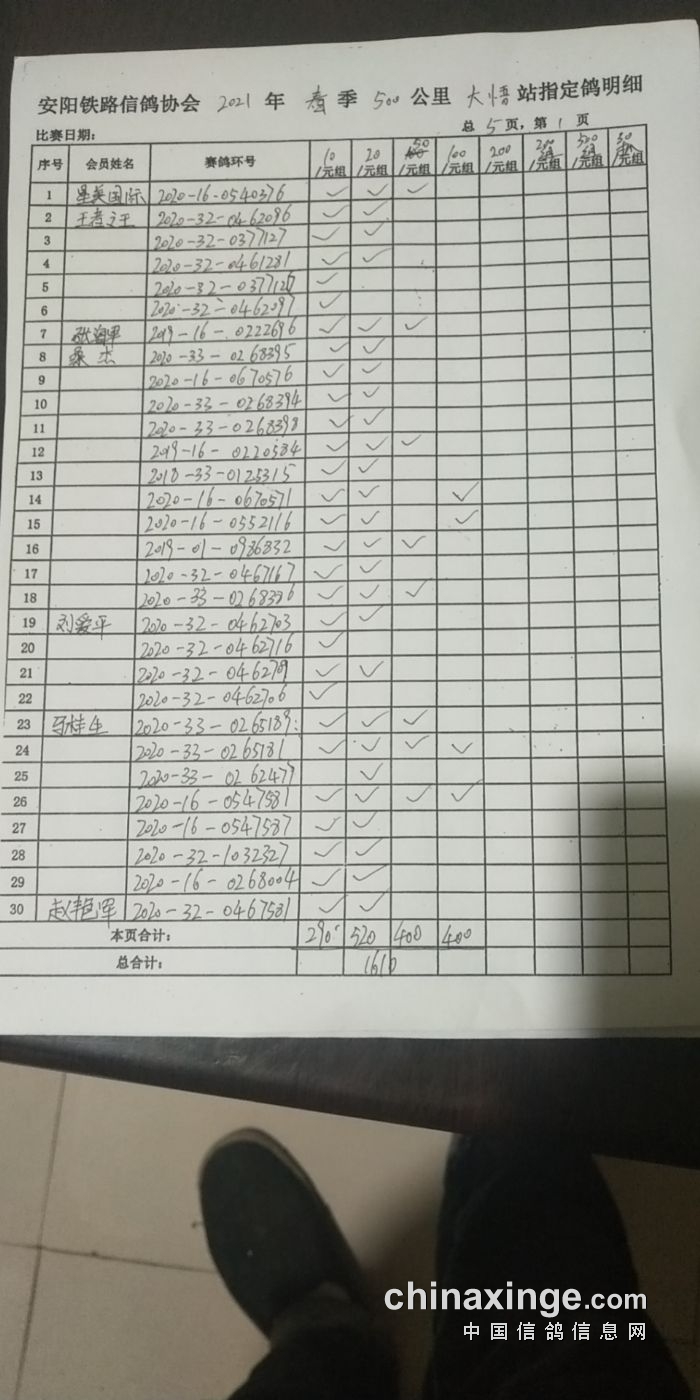 安阳铁路信鸽协会 2021 年 春 季 500 公里 大悟 站指定鸽明细
比赛日期: 总 5 页, 第 1 页
序号 会员姓名 赛鸽环号 10/元组 20/元组 50/元组 100/元组 200/元组 /元组 /元组 /元组
1 星美国际 2020-16-0540376 ✓ ✓ ✓
2 王者之王 2020-32-0462096 ✓ ✓
3 2020-32-0377127 ✓ ✓
4 2020-32-0461281 ✓ ✓
5 2020-32- ✓
6 2020-32-0462097 ✓
7 2019-16-0222696 ✓ ✓ ✓
8 桑杰 2020-33-0268395 ✓ ✓
9 2020-16-0670576 ✓ ✓
10 2020-33-0268394 ✓ ✓
11 2020-33-0268398 ✓ ✓
12 2019-16-0220584 ✓ ✓ ✓
13 2018-33-0125315 ✓ ✓
14 2020-16-0670571 ✓ ✓ ✓
15 2020-16-0552116 ✓ ✓ ✓
16 2019-01-0986832 ✓ ✓ ✓
17 2020-32-0467167 ✓ ✓
18 2020-33- ✓ ✓ ✓
19 刘爱平 2020-32-0462703 ✓ ✓
20 2020-32-0462716 ✓
21 2020-32- ✓ ✓
22 2020-32-0462706 ✓
23 马桂生 2020-33-0265189 ✓ ✓ ✓
24 2020-33-0265181 ✓ ✓ ✓ ✓
25 2020-33-0262477 ✓
26 2020-16-0547581 ✓ ✓ ✓ ✓
27 2020-16-0547587 ✓ ✓
28 2020-32-1032327 ✓ ✓
29 2020-16-0268004 ✓ ✓
30 2020-32-0467581 ✓ ✓
本页合计: 290 520 400 400
总合计: 1610
chinaxinge.com
中国信鸽信息网